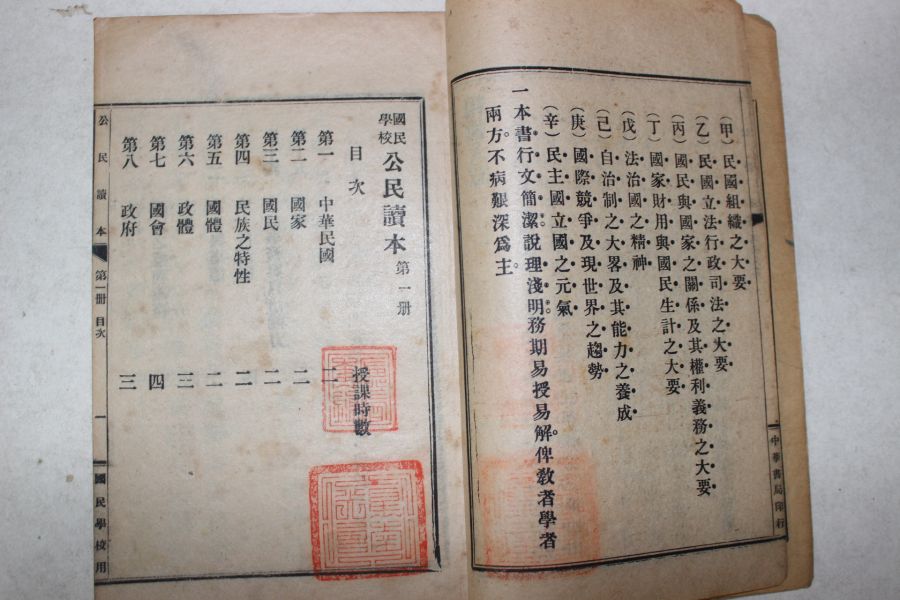 (甲)民國組織之大要
(乙)民國立法行政司法之大要
(丙)國民與國家之關係及其權利義務之大要
(丁)國家財用與國民生計之大要
(戊)法治國之精神
(己)自治制之大畧及其能力之養成
(庚)國際競爭及現世界之趨勢
(辛)民主國立國之元氣
一本書行文簡潔。說理淺明。務期易授易解。俾敎者學者
兩方。不病艱深爲主。
中華書局印行
國民學校 公民讀本 第一册
目次 授課時數
第一 中華民國 二
第二 國家 二
第三 國民 二
第四 民族之特性 二
第五 國體 二
第六 政體 三
第七 國會 四
第八 政府 三
公民讀本 第一册 目次 一 國民學校用